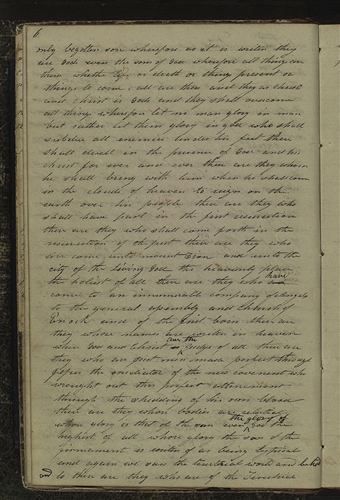 6
only begotten son wherefore as it is writen they
are Gods even the sons of God wherefore all things are
theirs whether life or death or things present or
things to come all are theirs and they are christs
and christ is Gods and they shall overcome
all things wherefore let no man glory in man
but rather let them glory in god who shall
subdue all enemies under his feet these
shall dwell in the presence of God and his
christ for ever and ever these are they whom
he shall bring with him when he shall come
in the clouds of heaven to reign on the
earth over his people these are they who
shall have part in the first resurrection
these are they who shall come forth in the
resurrection of the just these are they who
are come unto mount Zion and unto the
city of the living God the heavenly place
the holiest of all these are they who have
come to an innumerable company of angels
to the general assembly and church of
Enoch and of the first born these are
they whose names are writen in heaven
where God and Christ are the judge of all these are
they who are just men made perfect through
Jesus the mediator of the new covenant who
wrought out this perfect attonement
through the shedding of his own blood
these are they whose bodies are celestial
whose glory is that of the sun even the glory of God the
highest of all whose glory the sun of the
firmament is writen of as being typical
and again we saw the terestrial world and behold
and lo these are they who are of the terestrial